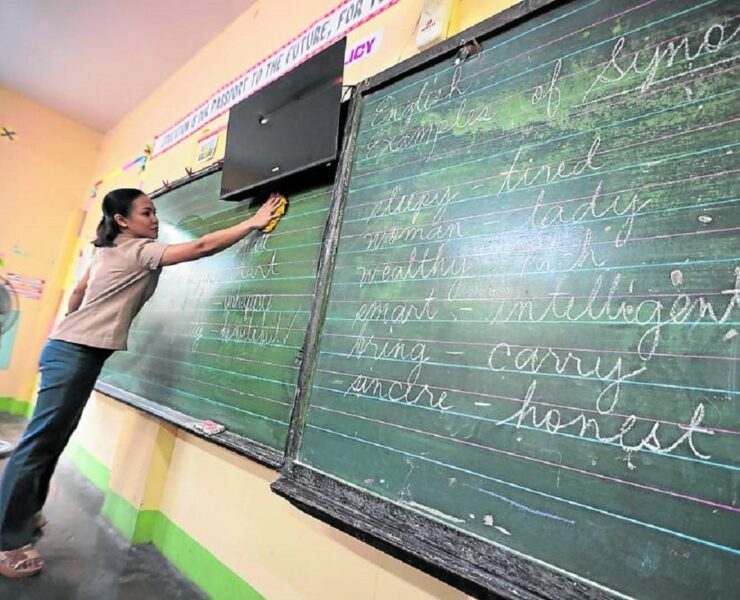 EDUCATION IS OUR PASSPORT TO THE FUTURE, FOR
LICY
unhappy
beautiful
English
Examples of Syno
sleepy - tired
woman - lady
wealthy - rich
smart - intelligent
bring - carry
sincere - honest